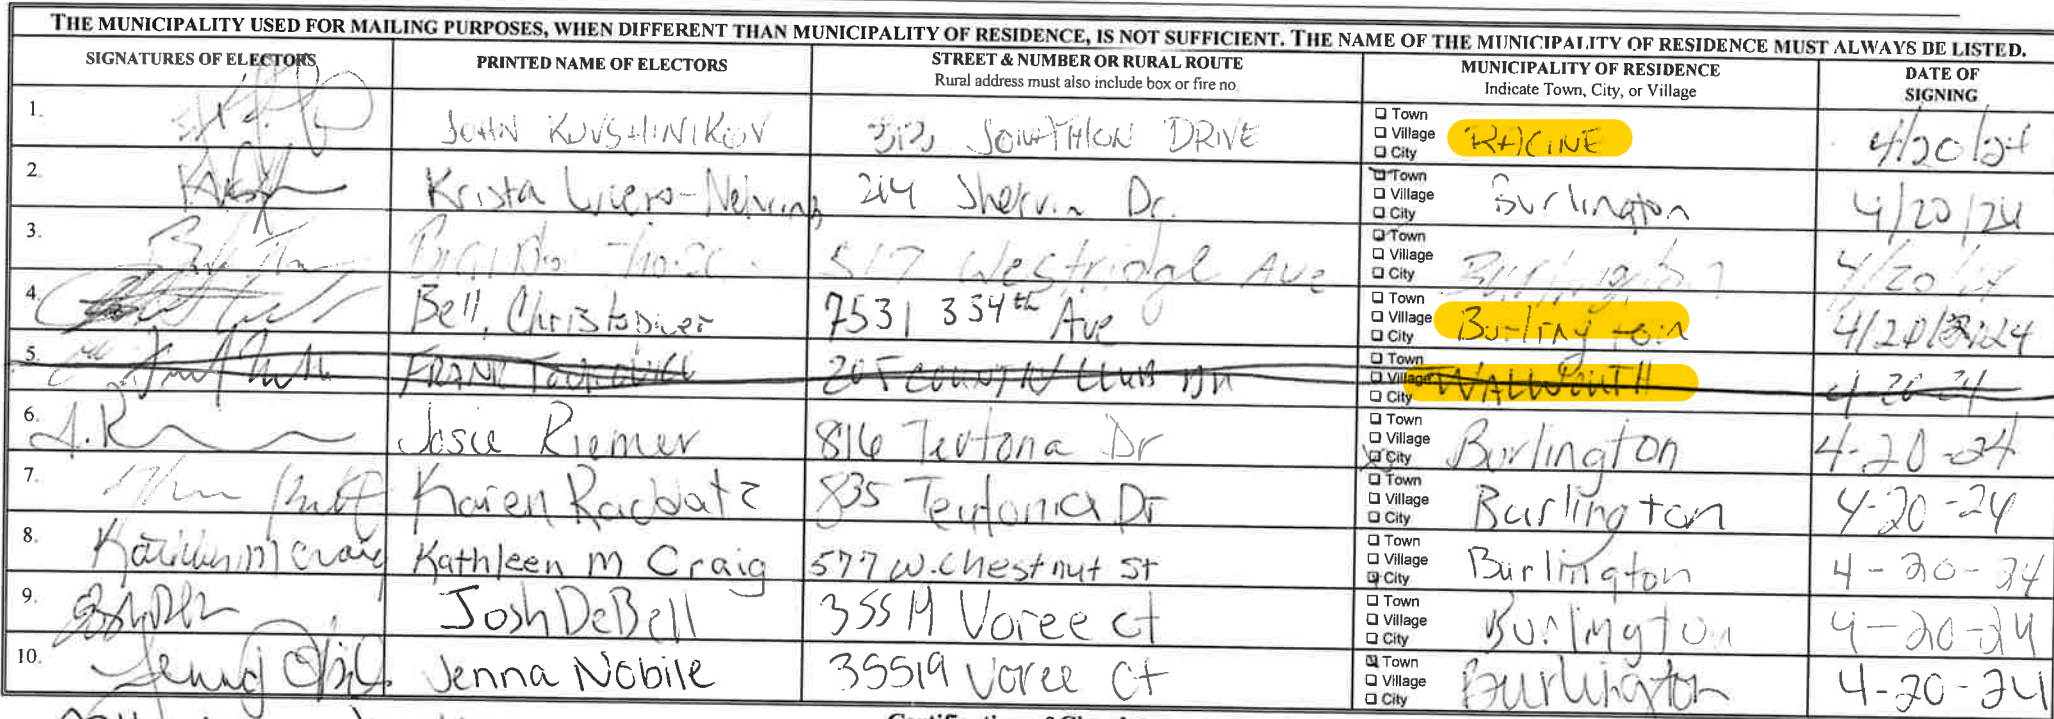 THE MUNICIPALITY USED FOR MAILING PURPOSES, WHEN DIFFERENT THAN MUNICIPALITY OF RESIDENCE, IS NOT SUFFICIENT. THE NAME OF THE MUNICIPALITY OF RESIDENCE MUST ALWAYS BE LISTED.
SIGNATURES OF ELECTORS PRINTED NAME OF ELECTORS STREET & NUMBER OR RURAL ROUTE MUNICIPALITY OF RESIDENCE DATE OF SIGNING
Rural address must also include box or fire no. Indicate Town, City, or Village
1. JOHN KUVSHINIKOV JONATHON DRIVE Town Village City RACINE 4/20/24
2. Krista 214 Shervin Dr. Town Village City Burlington 4/20/24
3. 517 Westridge Ave Town Village City Burlington 4/20/24
4. Bell, Christopher 7531 334th Ave Town Village City Burlington 4/20/2024
5. FRANK COUNTRY CLUB Town Village City WALWORTH 4-20-24
6. J. R Josie Riemer 816 Teutona Dr Town Village City Burlington 4-20-24
7. Karen Raddatz 835 Teutonia Dr Town Village City Burlington 4-20-24
8. Kathleen M Craig Kathleen M Craig 577 W. Chestnut St Town Village City Burlington 4-20-24
9. Josh DeBell 35519 Voree Ct Town Village City Burlington 4-20-24
10. Jenna Nobile 35519 Voree Ct Town Village City Burlington 4-20-24